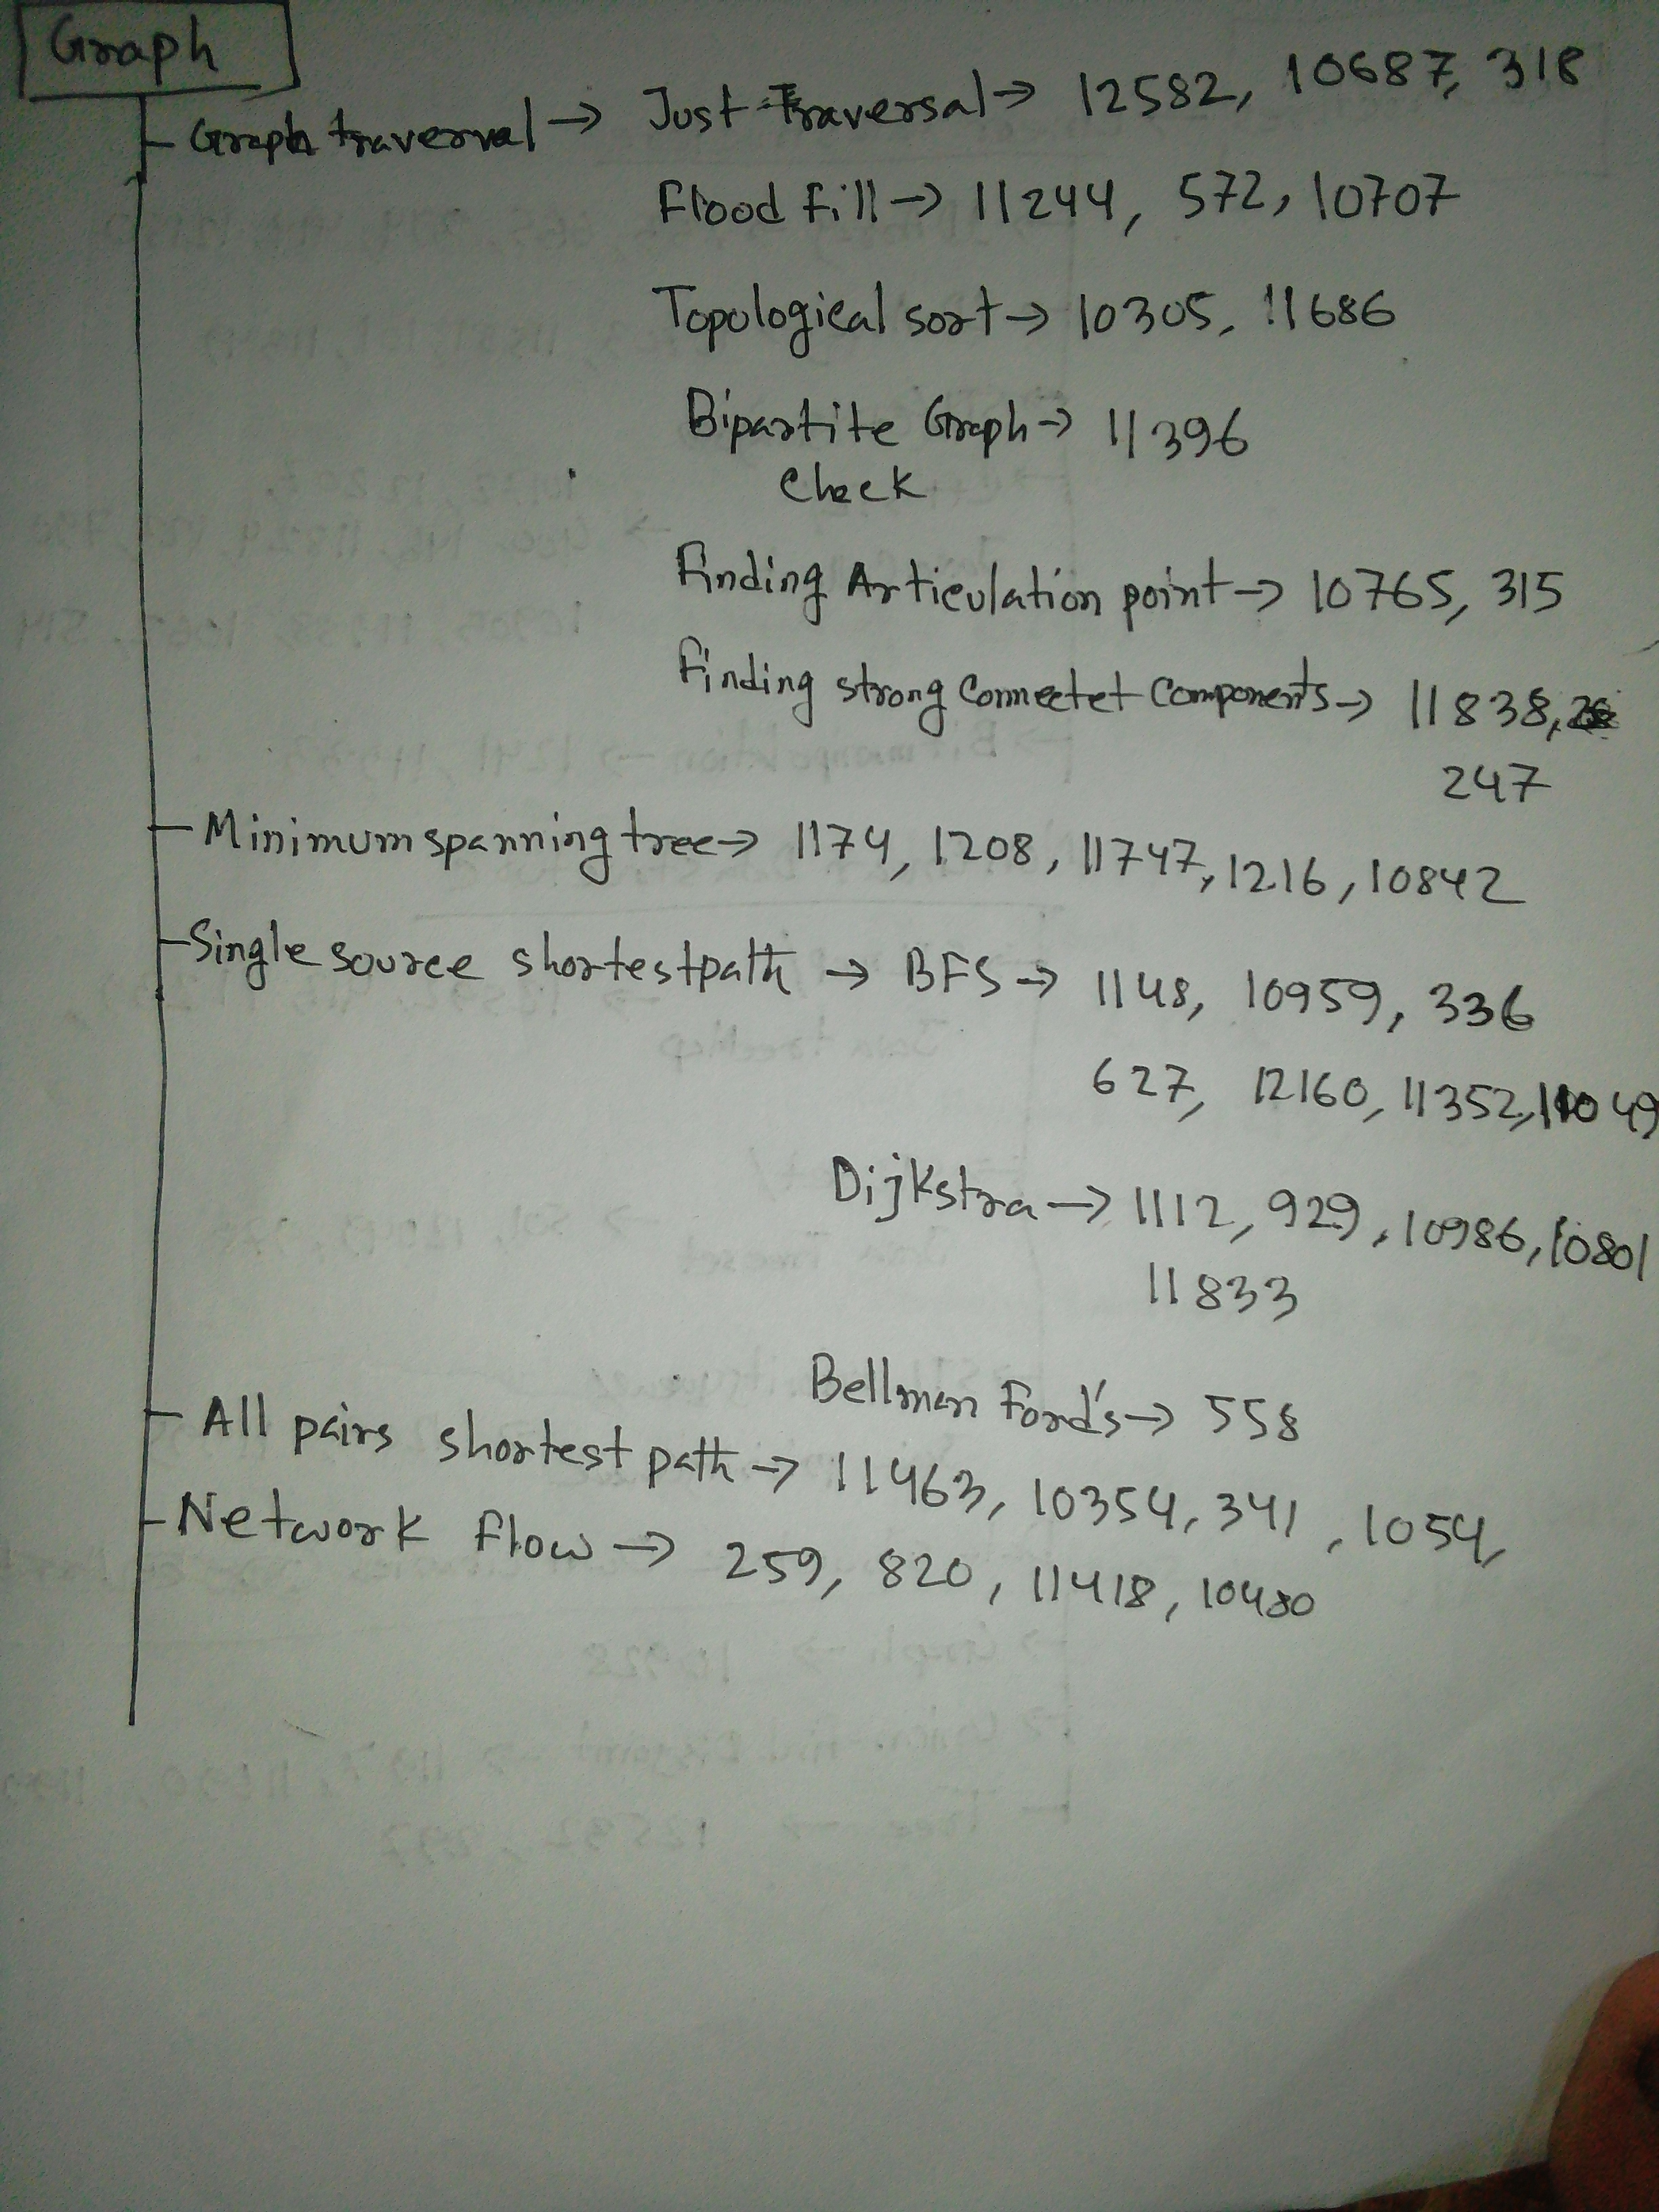 Graph
Graph traversal → Just Traversal → 12582, 10687, 318
Flood fill → 11244, 572, 10707
Topological sort → 10305, 11686
Bipartite Graph → 11396
Check
Finding Articulation point → 10765, 315
Finding strong Connectet Components → 11838,
247
Minimum spanning tree → 1174, 1208, 11747, 1216, 10842
Single source shortest path → BFS → 1148, 10959, 336
627, 12160, 11352,
Dijkstra → 1112, 929, 10986, 10801
11833
Bellman Ford's → 558
All pairs shortest path → 11463, 10354, 341, 1054,
Network flow → 259, 820, 11418, 10480